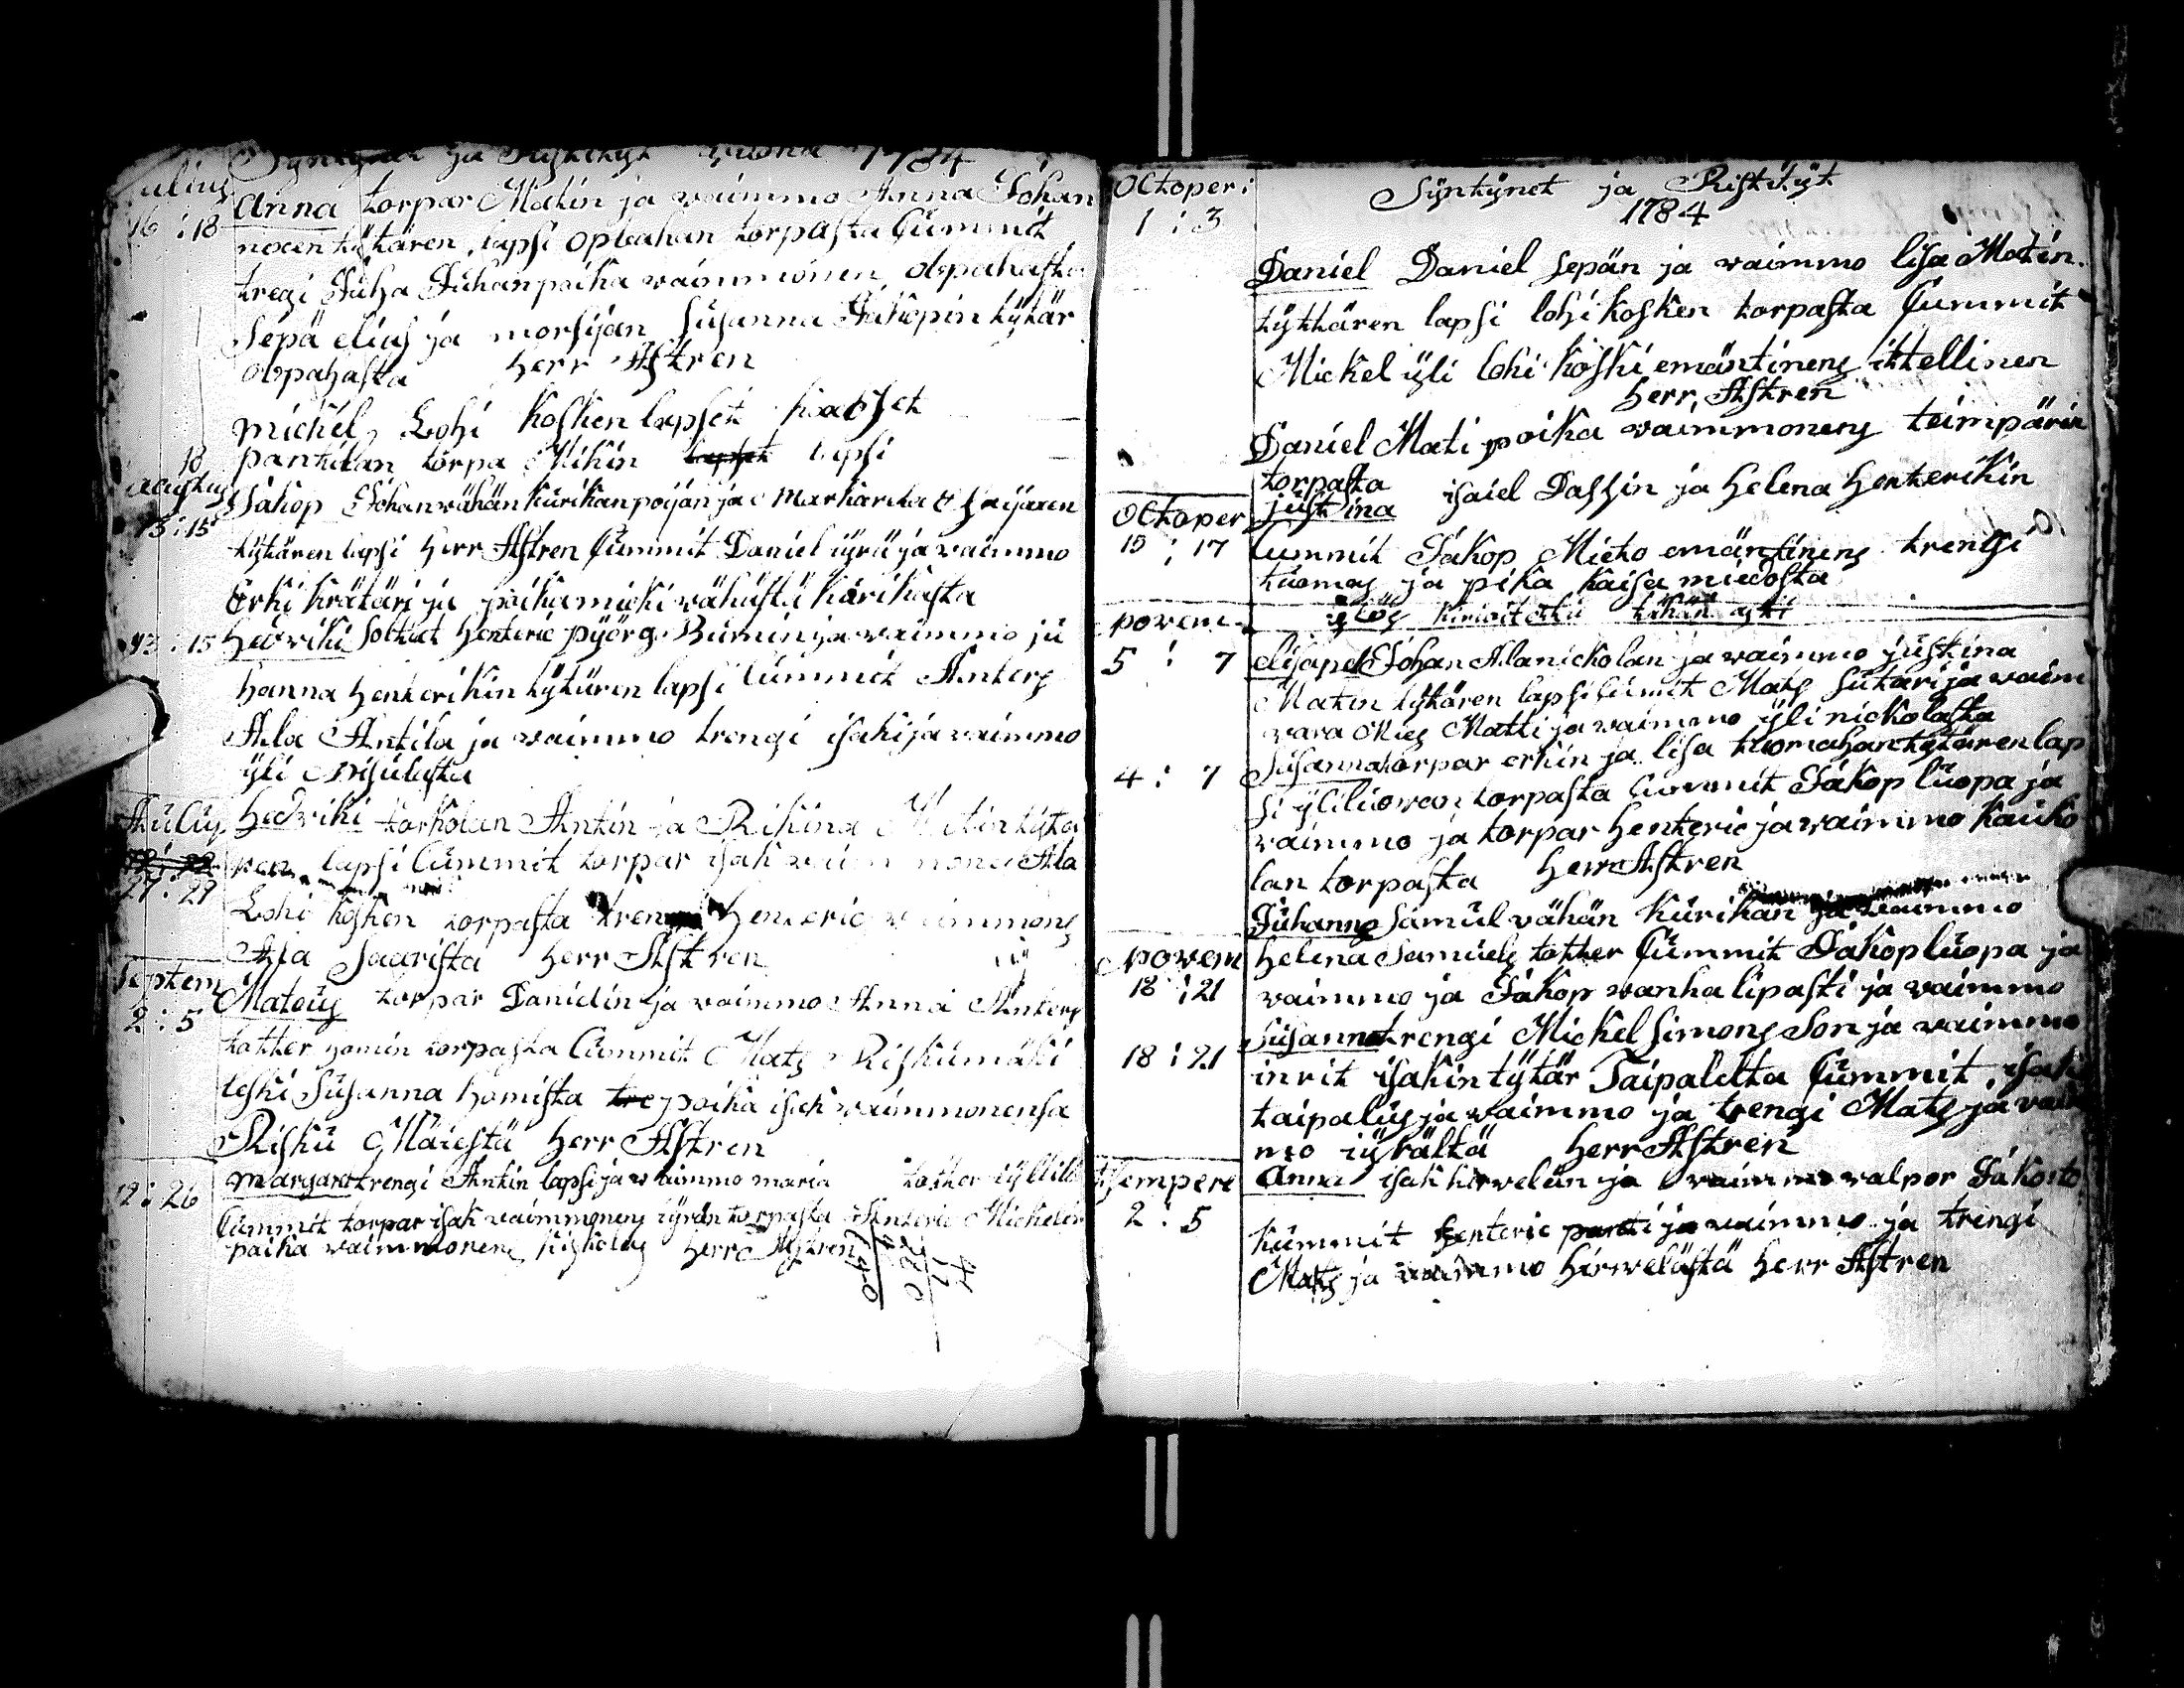 Syntynet ja Ristityt vuona 1784
Julius
16 : 18
Anna torpar Matin ja waimmo Anna Johan
noxen tytären, lapsi torpasta Cummit
tregi Juha Juhanpoika waimmonen
Sepä elias ja morsijan Susanna Jakopin tytär
herr Astren
michel, Lohi kosken lapset
18 torpa Mikin lapsi
augustus
13 : 15
Jakop Johan wähän kurikan poijan ja Markareta
tytären lapsi herr Astren Cummit Daniel üyrä ja waimmo
Erki krätäri ja poikamieki wähästä kurikasta
13 : 15 hedviki soltat henteric pyörg ja waimmo ju
hanna henterikin tytären lapsi Cummit Anters
Ala Antila ja waimmo trengi isaki ja waimmo
yli
Julius
27 : 29
hedviki torkolan Antin ja Rikina Matin tytä
ren lapsi Cummit torpar isak Ala
Lohi kosken torpasta henteric waimmons
Ala Saarista herr Astren
Septem
2 : 5
Mateus torpar Danielin ja waimmo Anna Anters
totter torpasta Cummit Mats Riskumäki
leski Susanna homista tre poika isak waimmonensa
Risku Mäiestä herr Astren
12 : 26
margaret trengi Antin lapsi ja waimmo maria totter
Cummit torpar isak waimmonens üyrän torpasta Henteric Michelin
poika waimmonens herr Astren
Octoper :
1 : 3
Syntynet ja Ristityt
1784
Daniel Daniel sepän ja waimmo lisa Matin
tyttären lapsi lohi kosken torpasta Cummit
Mickel yli lohi koski emäntinens ittellinen
herr, Astren
Daniel Mati poika waimmonens teimpärin
torpasta
Octoper
15 : 17
justina isaiel Dassin ja helena henterikin
Cummit Jakop Mieto emäntinens trengi
tuomas ja pika kaisa miedosta
novem
5 : 7
elisapet Johan Alanickolan ja waimmo justina
Matin tytären lapsi Cumit Mats sutari ja waim
wara Mies Matti ja waimmo yli nickolasta
4 : 7 Susanna torpar erkin ja lisa tuomahan tytären lap
si yliluowan torpasta Cummit Jakop luopa ja
waimmo ja torpar henteric ja waimmo kauko
lan torpasta herr Astren
Juhanns Samul wähän kurikan ja waimmo
novem
18 : 21
helena Samuels totter Cummit Jakop luopa ja
waimmo ja Jakop wanha lipasti ja waimmo
18 : 21
Susanna trengi Mickel Simons Son ja waimmo
inrit isakin tytär Taipalelta Cummit, isak
taipalus ja waimmo ja trengi Mats ja waim
mo üyrältä herr Astren
tsempere
2 : 5
Anna isak hirwelän ja waimmo walpor Jakosto
kummit henteric panti ja waimmo ja trengi
Mats ja waimmo hirwelästä herr Astren